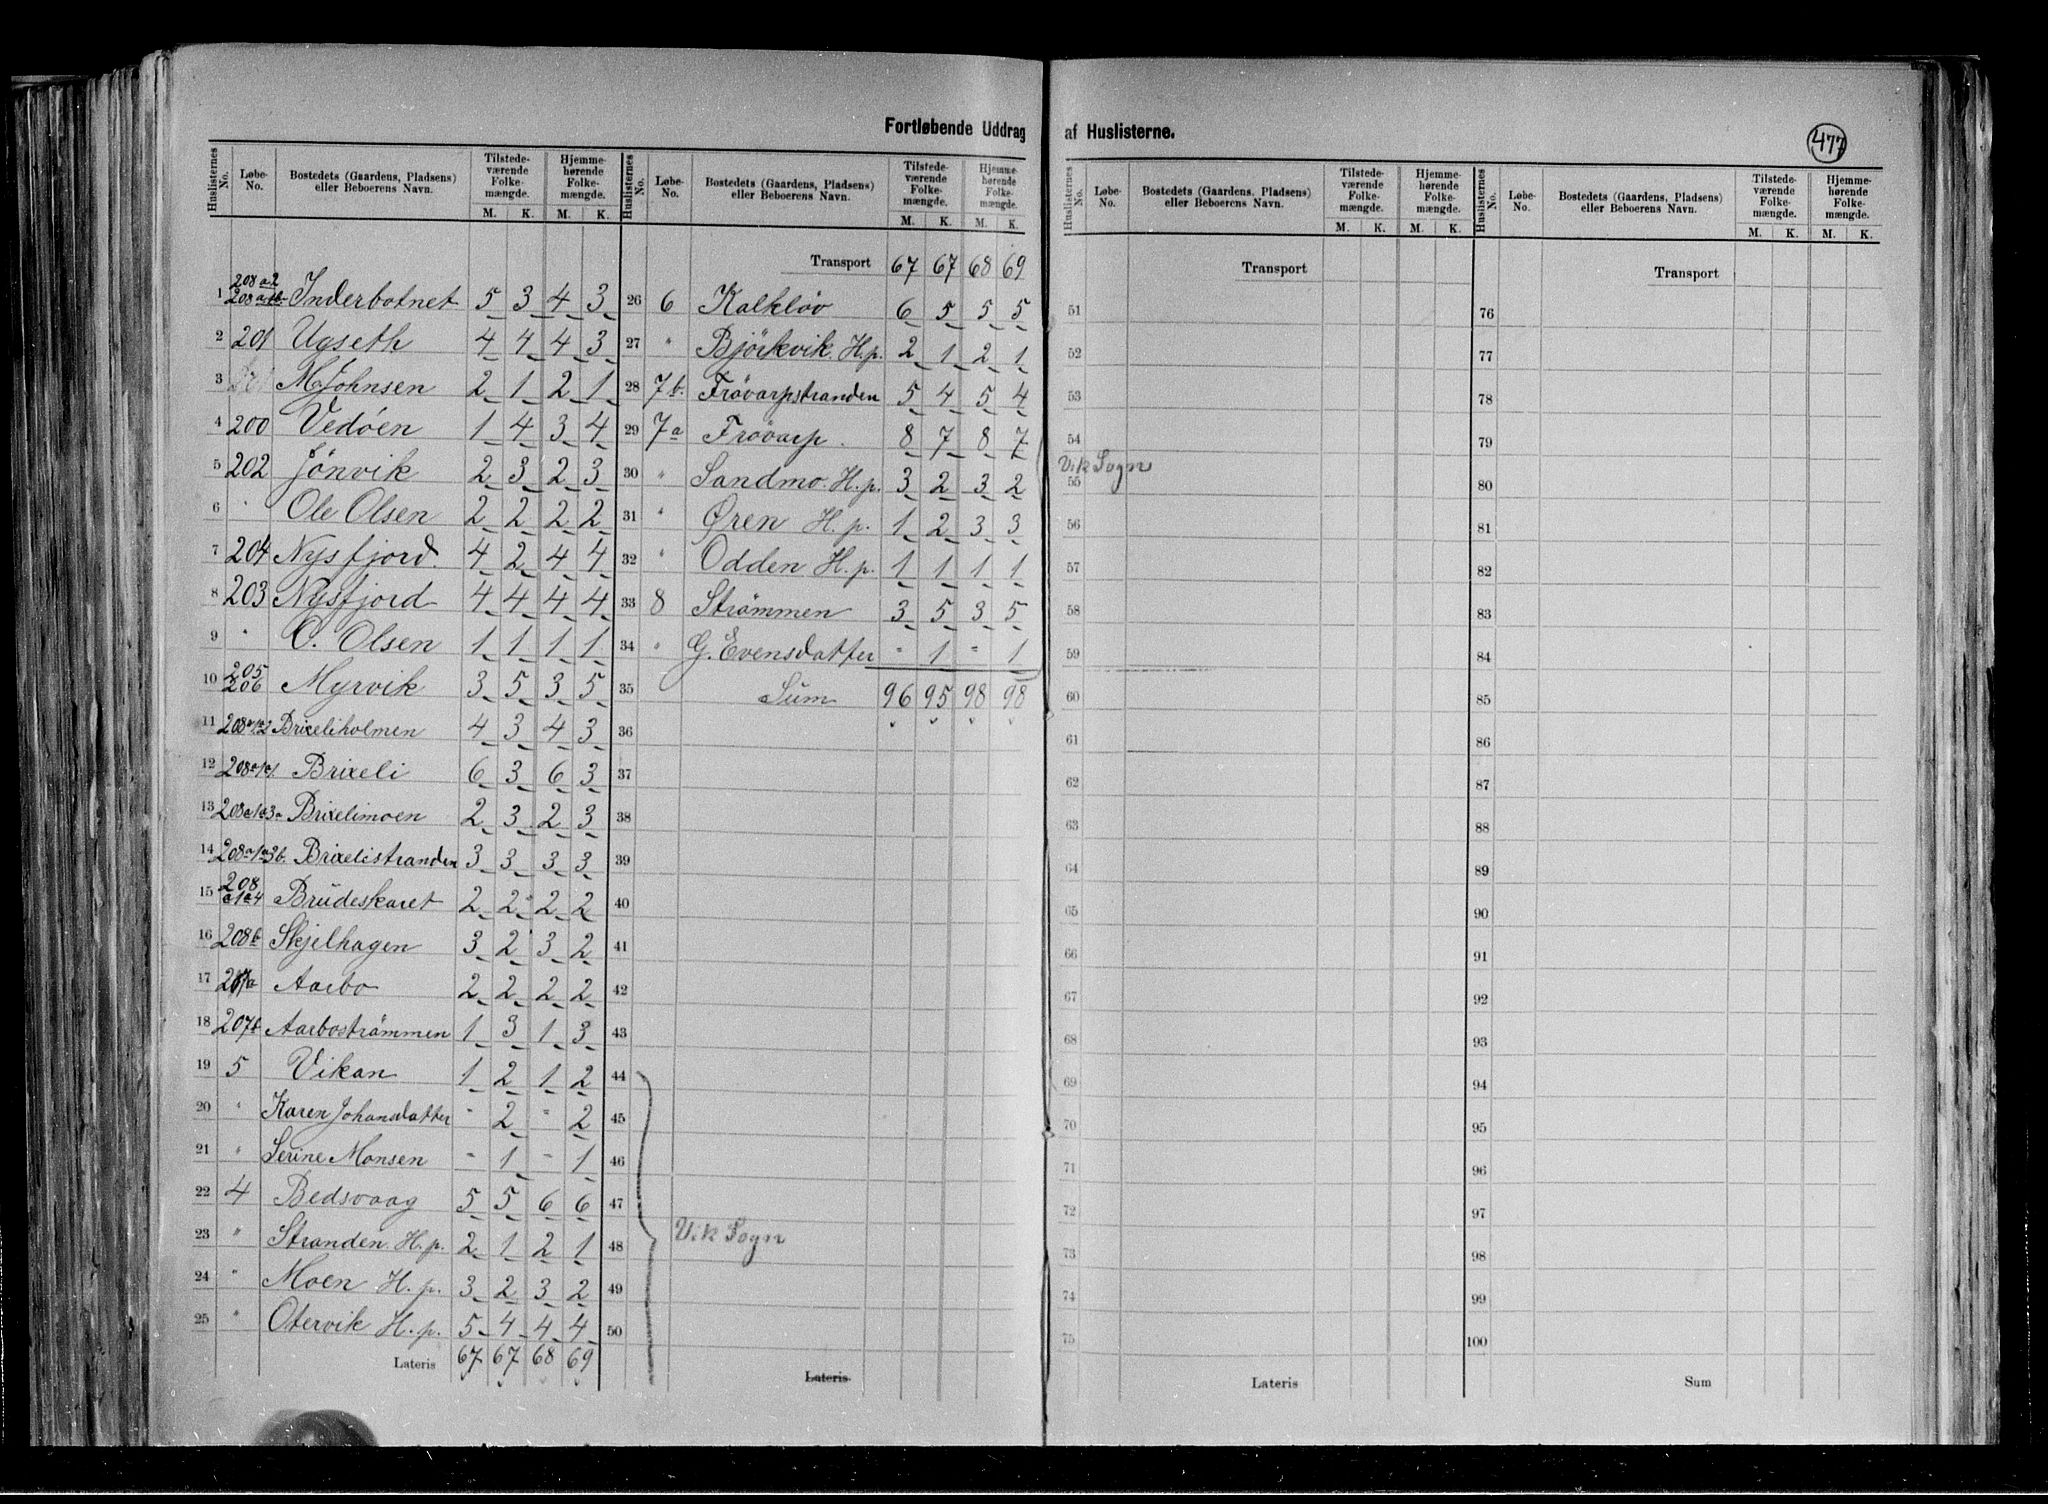 Fortløbende Uddrag af Huslisterne.
477
Huslisternes No. Løbe-No. Bostedets (Gaardens, Pladsens) eller Beboerens Navn. Tilstedeværende Folkemængde. M. K. Hjemmehørende Folkemængde. M. K.
1 208 a2 208 a1b Inderbotnet 5 3 4 3
2 201 Ugseth 4 4 4 3
3 M Johnsen 2 1 2 1
4 200 Vedöen 1 4 3 4
5 202 Jönvik 2 3 2 3
6 " Ole Olsen 2 2 2 2
7 204 Nysfjord. 4 2 4 4
8 203 Nysfjord 4 4 4 4
9 " O. Olsen 1 1 1 1
10 205 206 Myrvik 3 5 3 5
11 208a1a2 Brixeliholmen 4 3 4 3
12 208a1a1 Brixeli 6 3 6 3
13 208a1a3a Brixelimoen 2 3 2 3
14 208a1a3b. Brixelistranden 3 3 3 3
15 208 a1a4 Brüdeskaret 2 2 2 2
16 208b Skjelhagen 3 2 3 2
17 207a Aarbo 2 2 2 2
18 207b Aarboströmmen 1 3 1 3
19 5 Vikan 1 2 1 2
20 " Karen Johansdatter " 2 " 2
21 " Serine Monsen " 1 " 1
22 4 Bedsvaag 5 5 6 6
23 " Stranden H.p. 2 1 2 1
24 " Moen H.p. 3 2 3 2
25 " Otervik H.p. 5 4 4 4
Lateris 67 67 68 69
Huslisternes No. Løbe-No. Bostedets (Gaardens, Pladsens) eller Beboerens Navn. Tilstedeværende Folkemængde. M. K. Hjemmehørende Folkemængde. M. K.
Transport 67 67 68 69
26 6 Kalklöv 6 5 5 5
27 " Björkvik H.p. 2 1 2 1
28 7b. Frövarpstranden 5 4 5 4
29 7a Frövarp. 8 7 8 7
30 " Sandmo. H.p. 3 2 3 2
31 " Øren H.p. 1 2 3 3
32 " Odden H.p. 1 1 1 1
33 8 Strömmen 3 5 3 5
34 " G. Evensdatter " 1 " 1
35 Süm 96 95 98 98
36
37
38
39
40
41
42
43
44
45
46
47
Vik Sogn
48
49
50
Lateris
Huslisternes No. Løbe-No. Bostedets (Gaardens, Pladsens) eller Beboerens Navn. Tilstedeværende Folkemængde. M. K. Hjemmehørende Folkemængde. M. K.
Transport
51
52
53
54
Vik Sogn
55
56
57
58
59
60
61
62
63
64
65
66
67
68
69
70
71
72
73
74
75
Lateris
Huslisternes No. Løbe-No. Bostedets (Gaardens, Pladsens) eller Beboerens Navn. Tilstedeværende Folkemængde. M. K. Hjemmehørende Folkemængde. M. K.
Transport
76
77
78
79
80
81
82
83
84
85
86
87
88
89
90
91
92
93
94
95
96
97
98
99
100
Sum